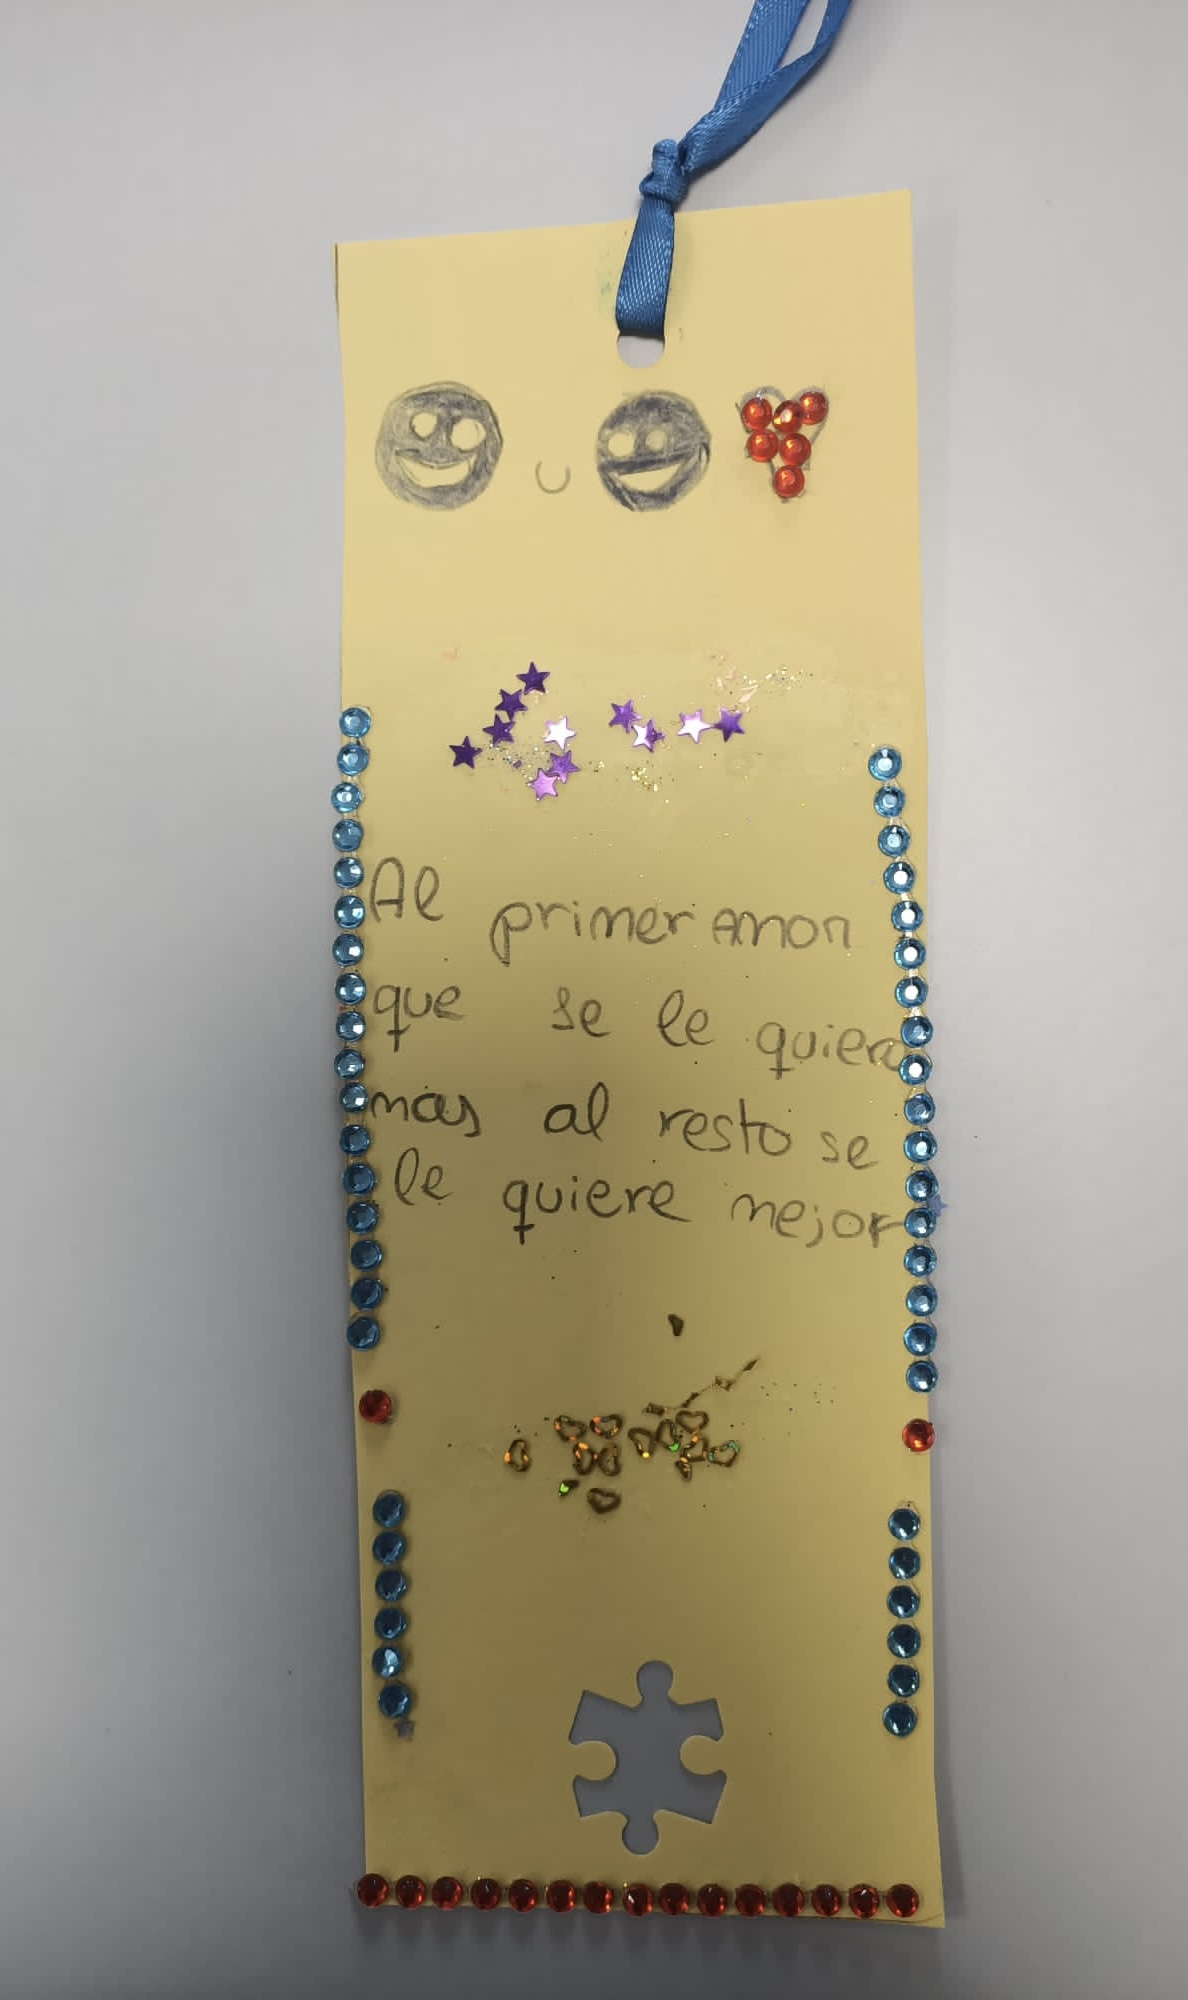 Al primer amor
que se le quiera
mas al resto se
le quiere mejor